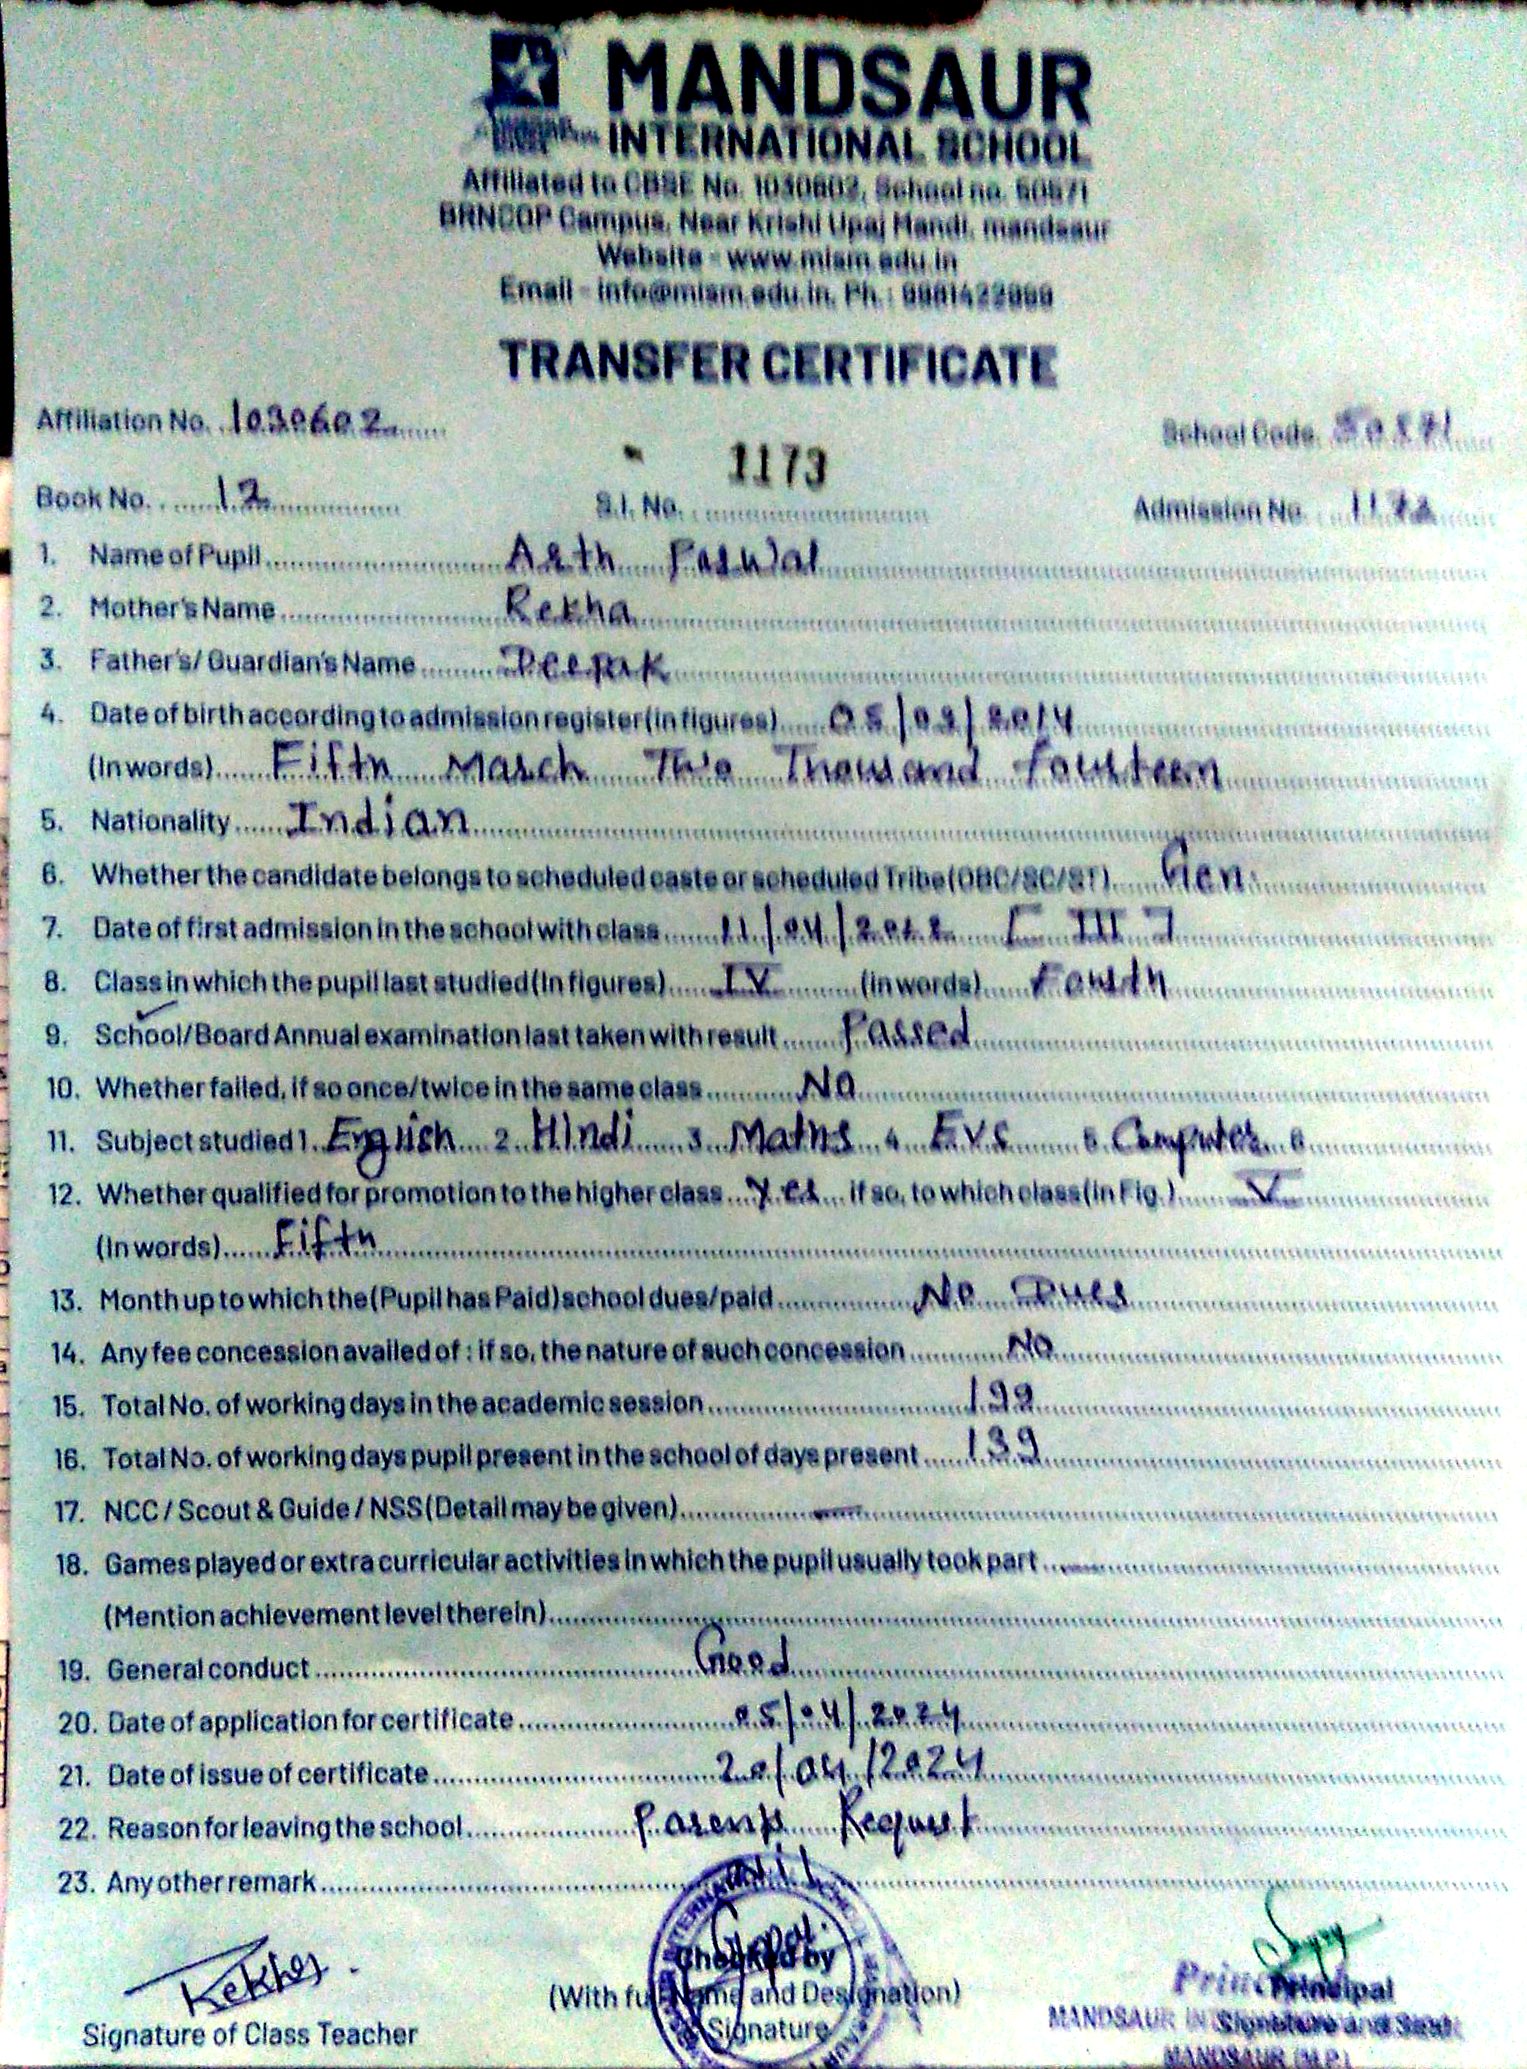 MANDSAUR
INTERNATIONAL SCHOOL
Affiliated to CBSE No. 1030602, School no. 50571
BRNCOP Campus, Near Krishi Upaj Mandi, mandsaur
Website - www.mism.edu.in
Email - info@mism.edu.in, Ph. :
TRANSFER CERTIFICATE
Affiliation No. 1030602 School Code 50571
1173
Book No. 12 S.I. No. Admission No. 1172
1. Name of Pupil Arth Porwal
2. Mother's Name Rekha
3. Father's/Guardian's Name Deepak
4. Date of birth according to admission register (in figures) 05/03/2014
(In words) Fifth March Two Thousand Fourteen
5. Nationality Indian
6. Whether the candidate belongs to scheduled caste or scheduled Tribe (OBC/SC/ST) Gen.
7. Date of first admission in the school with class 11/04/2022 [III]
8. Class in which the pupil last studied (In figures) IV (in words) Fourth
9. School/Board Annual examination last taken with result Passed
10. Whether failed, if so once/twice in the same class No
11. Subject studied 1. English 2. Hindi 3. Maths 4. Evs 5. Computer 6.
12. Whether qualified for promotion to the higher class Yes if so, to which class (in Fig.) V
(In words) Fifth
13. Month up to which the (Pupil has Paid) school dues/paid No Dues
14. Any fee concession availed of : if so, the nature of such concession No
15. Total No. of working days in the academic session 199
16. Total No. of working days pupil present in the school of days present 139
17. NCC / Scout & Guide / NSS (Detail may be given) —
18. Games played or extra curricular activities in which the pupil usually took part —
(Mention achievement level therein)
19. General conduct Good
20. Date of application for certificate 05/04/2024
21. Date of issue of certificate 20/04/2024
22. Reason for leaving the school Parents Request
23. Any other remark Nil
Checked by
(With full Name and Designation)
Signature
Signature of Class Teacher
Principal
Signature and Seal
MANDSAUR
MANDSAUR (M.P.)